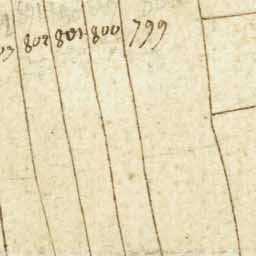 802 801 800 799